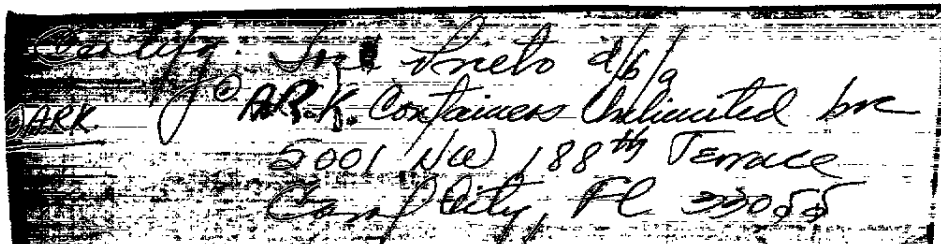 Certify: José Prieto d/b/a
© A.R.K. Containers Unlimited Inc
©ARK
5001 NW 188th Terrace
Carol City, FL 33055